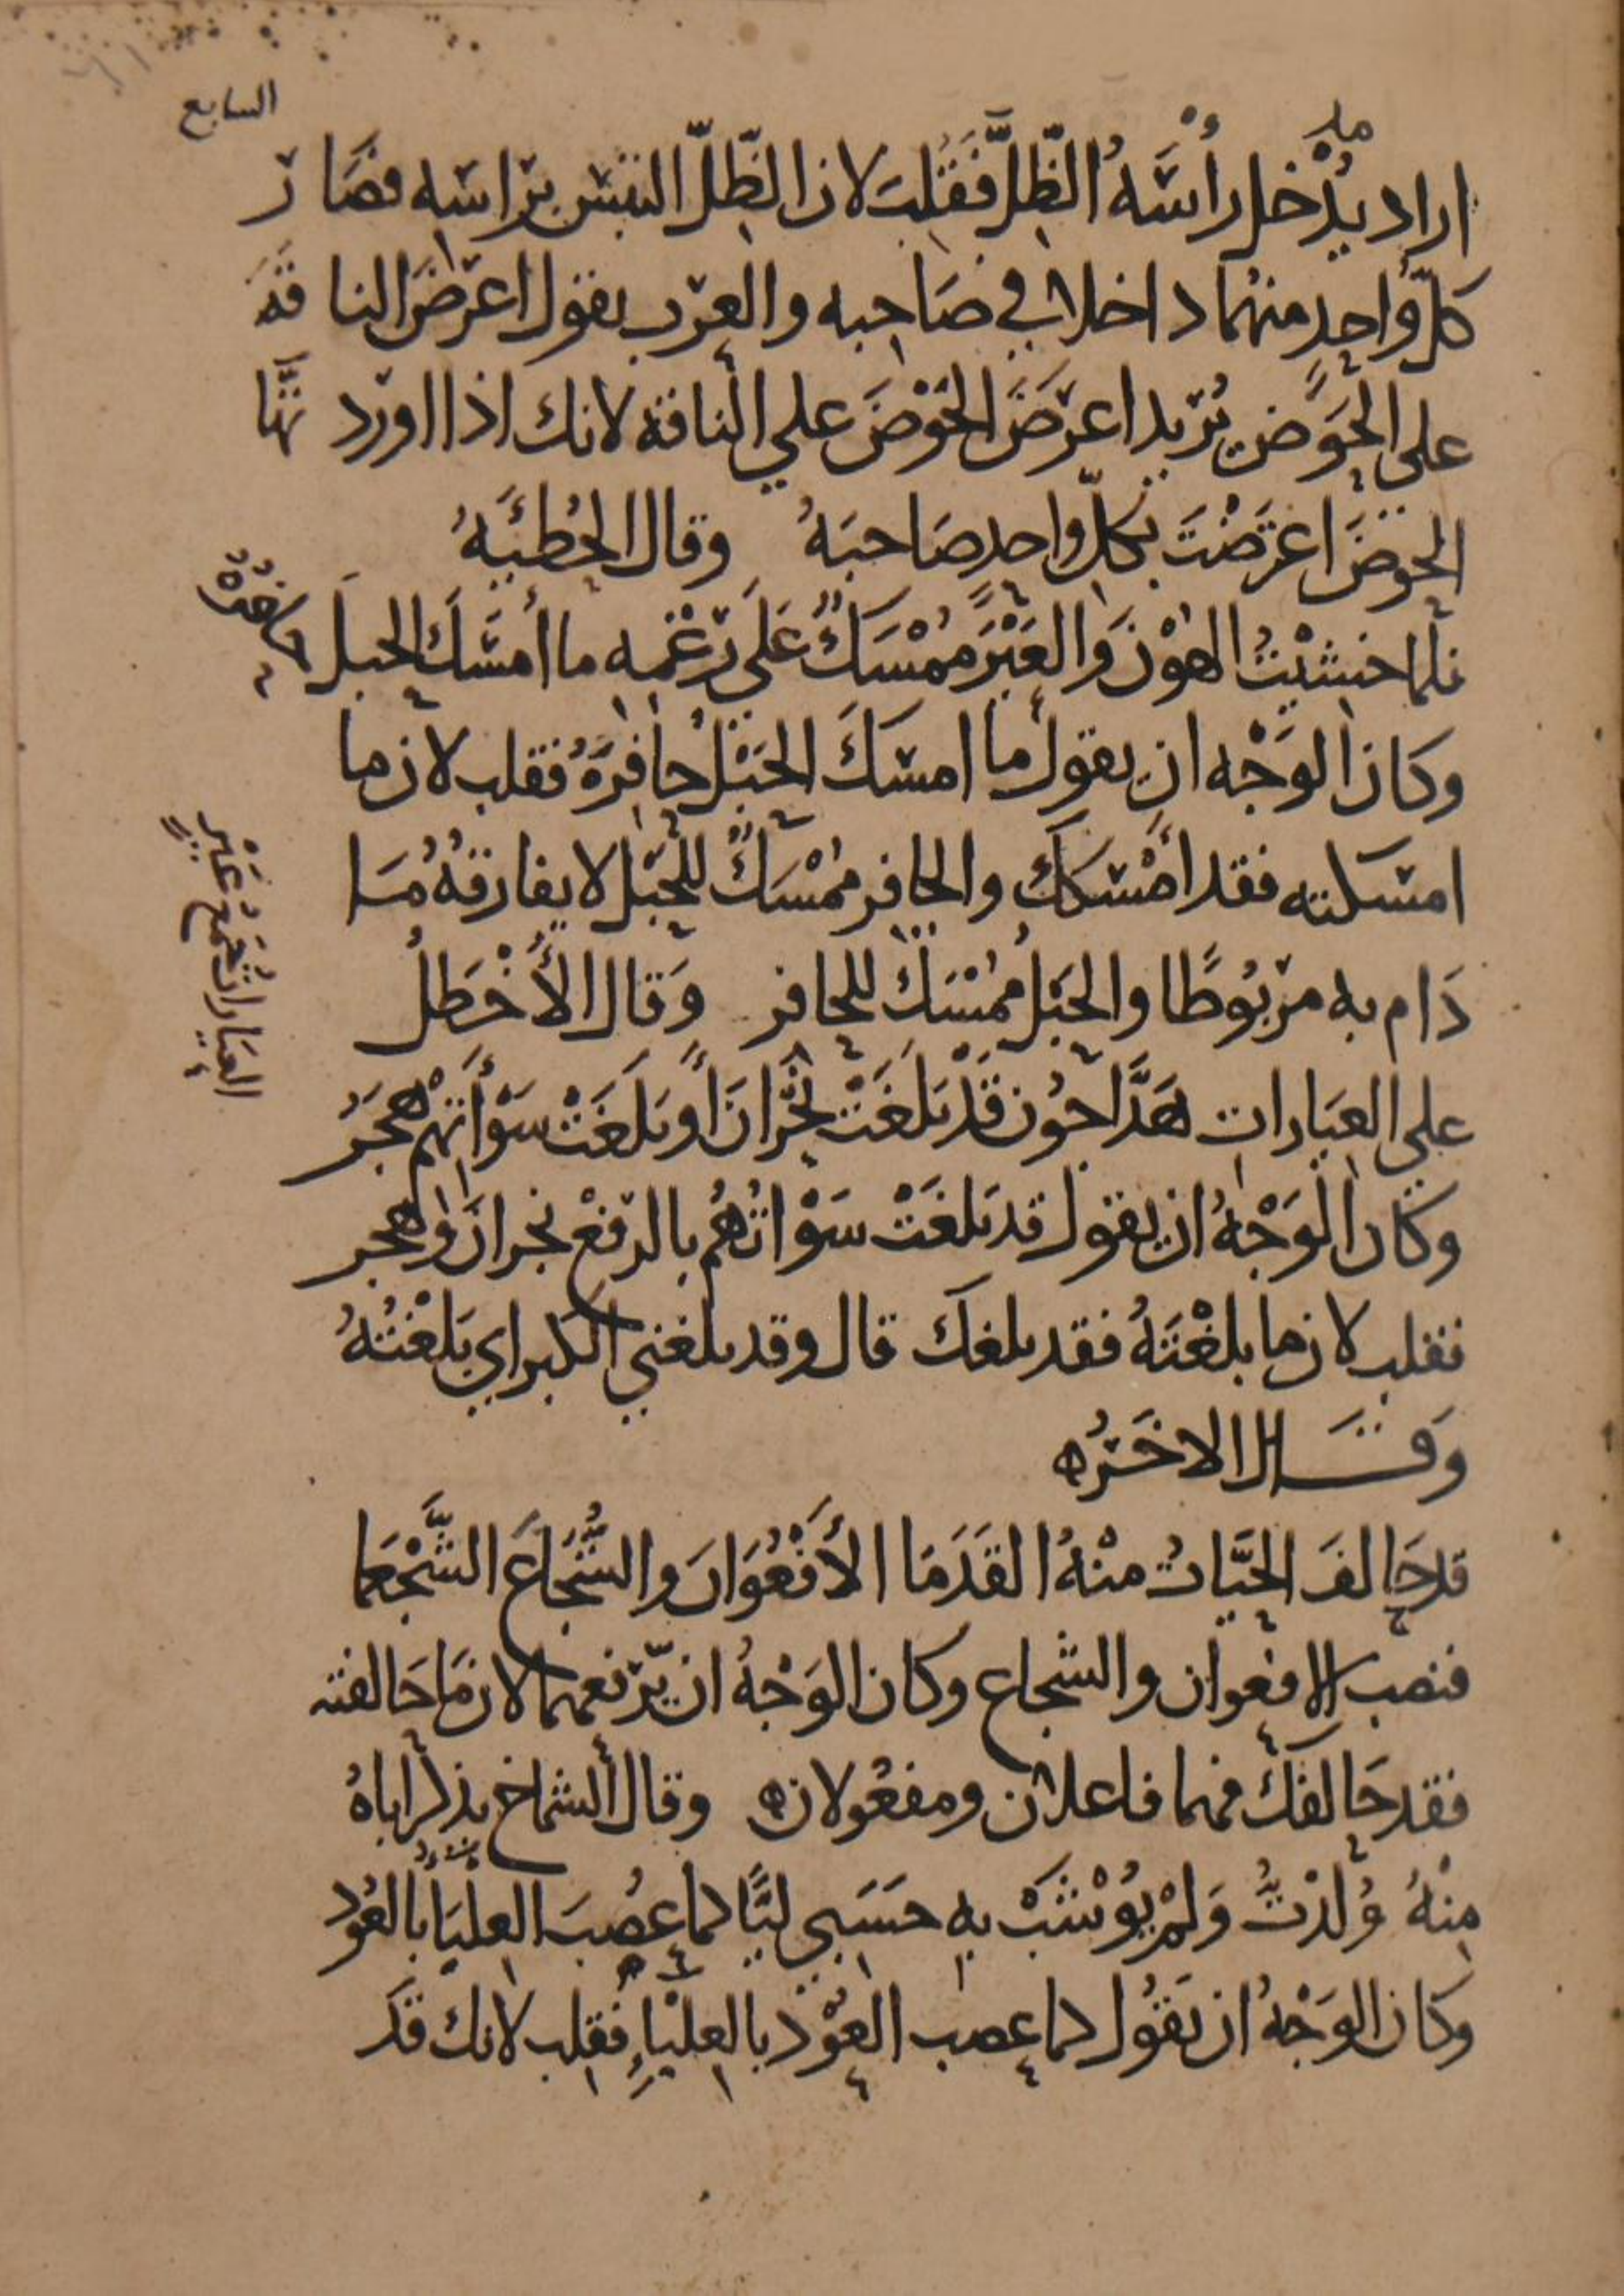 السابع
اراد يُدْخل رأسَهُ الظِّلَّ فَقُلِبَ لان الظِّلّ التبس براسه فصَار
كلّ وَاحِدٍ منهُما داخلا في صَاحِبه والعرب يقول اعرضَ الناقةَ
على الحَوضِ يُريد اعرَضَ الحَوْضَ علي الناقة لانك اذا اوردتَها
الحوضَ اعرَضْتَ بكلّ واحدٍ صَاحبَهُ وقال الحُطيئَهُ
فلما خشيْتُ الهُوْنَ وَالعَيْرُ مُمْسِكٌ عَلَى رَغْمِهِ ما أمسَكَ الحبلَ حَافِرُهْ
وكان الوَجْه ان يقول ما امسَكَ الحَبْلُ حافِرَهُ فقلب لان ما
امسكته فقد أمْسَكَكَ والحافر مُمْسِكٌ للحَبْل لا يفارقهُ مَا
دَام به مربُوطًا والحَبْلُ مُمْسِكٌ للحافر وَقال الأَخْطَلُ
علي العيَارات هَدَّاجُون قَدْ بَلَغَتْ نَجْرَانَ أو بَلَغَتْ سَوْأَتِهِمْ هَجَرُ
وكان الوَجْهُ ان يقول قد بَلغَتْ سَوْاتُهُم بالرفع نجرانَ وهجر
فقلب لان ما بلغْتَهُ فقد بلغكَ قال وقد بلغني الكبر اي بَلَغْتُهُ
وَقَال الاخَرُ
قد حَالفَ الحَيَّاتُ منْهُ القَدَمَا الأَفْعُوَانَ والشُّجَاعَ الشَّجْعَما
فنصب الافعوان والشجاع وكان الوَجْهُ ان يرفعهما لان مَا حَالفته
فقد حَالفكَ فهما فاعلان ومفعُولان وقال الشماخ يذكر اباهُ
مِنْهُ وُلِدْتُ وَلمْ يُؤْشَبْ بِهِ حَسَبِي ليًّا كما عُصِبَ العِلبَاءُ بالعُودِ
وكان الوَجْهُ ان يَقُول كما عصب العُوْد بالعِلْبَاءِ فقلب لانك قَد
العيَاراتُ جَمْعُ عَيْرٍ